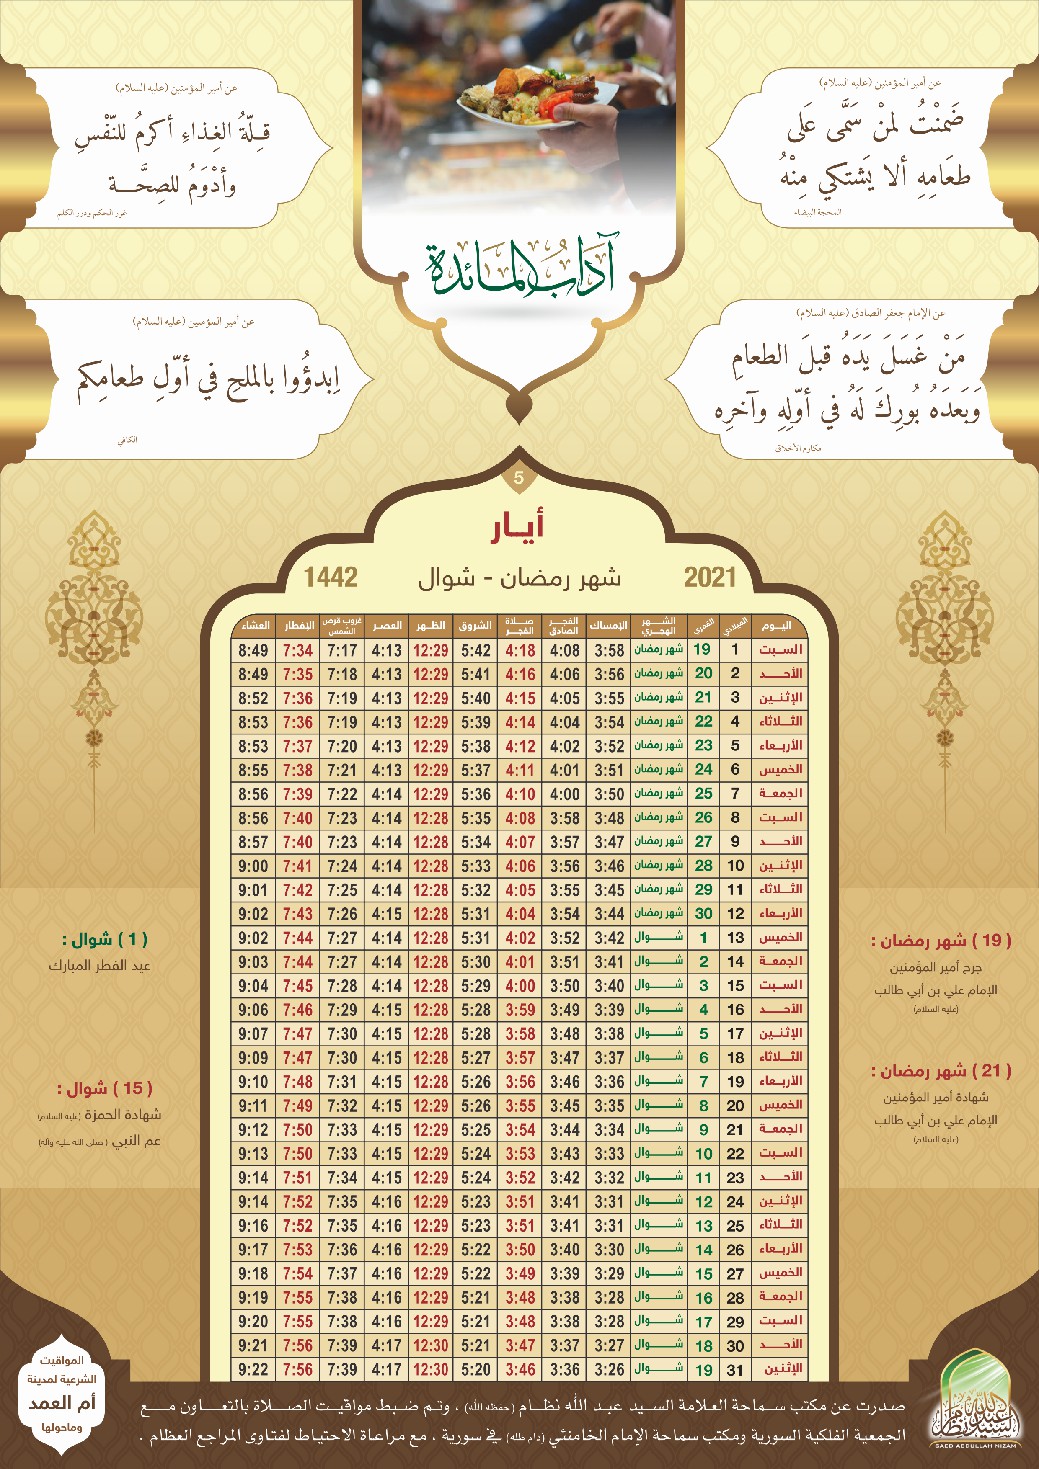 عن أمير المؤمنين (عليه السلام)
ضَمنْتُ لمنْ سَمَّى عَلَى
طعَامِهِ ألا يَشتكي مِنْهُ
المحجة البيضاء
عن أمير المؤمنين (عليه السلام)
قِلّةُ الغِذاءِ أكرمُ للنّفْسِ
وأدْوَمُ للصِحَّة
غرر الحكم ودرر الكلم
آداب المائدة
عن الإمام جعفر الصادق (عليه السلام)
مَنْ غَسَلَ يَدَهُ قبلَ الطعامِ
وَبَعدَهُ بُورِكَ لَهُ في أوّلِهِ وآخرِه
مكارم الأخلاق
عن أمير المؤمنين (عليه السلام)
اِبدؤُوا بالملحِ في أوّلِ طعامِكم
الكافي
5
أيار
2021 شهر رمضان - شوال 1442
اليوم الميلادي القمري الشهر الهجري الإمساك الفجر الصادق صلاة الفجر الشروق الظهر العصر غروب قرص الشمس الإفطار العشاء
السبت 1 19 شهر رمضان 3:58 4:08 4:18 5:42 12:29 4:13 7:17 7:34 8:49
الأحد 2 20 شهر رمضان 3:56 4:06 4:16 5:41 12:29 4:13 7:18 7:35 8:49
الإثنين 3 21 شهر رمضان 3:55 4:05 4:15 5:40 12:29 4:13 7:19 7:36 8:52
الثلاثاء 4 22 شهر رمضان 3:54 4:04 4:14 5:39 12:29 4:13 7:19 7:36 8:53
الأربعاء 5 23 شهر رمضان 3:52 4:02 4:12 5:38 12:29 4:13 7:20 7:37 8:53
الخميس 6 24 شهر رمضان 3:51 4:01 4:11 5:37 12:29 4:13 7:21 7:38 8:55
الجمعة 7 25 شهر رمضان 3:50 4:00 4:10 5:36 12:29 4:14 7:22 7:39 8:56
السبت 8 26 شهر رمضان 3:48 3:58 4:08 5:35 12:28 4:14 7:23 7:40 8:56
الأحد 9 27 شهر رمضان 3:47 3:57 4:07 5:34 12:28 4:14 7:23 7:40 8:57
الإثنين 10 28 شهر رمضان 3:46 3:56 4:06 5:33 12:28 4:14 7:24 7:41 9:00
الثلاثاء 11 29 شهر رمضان 3:45 3:55 4:05 5:32 12:28 4:14 7:25 7:42 9:01
الأربعاء 12 30 شهر رمضان 3:44 3:54 4:04 5:31 12:28 4:15 7:26 7:43 9:02
الخميس 13 1 شوال 3:42 3:52 4:02 5:31 12:28 4:14 7:27 7:44 9:02
الجمعة 14 2 شوال 3:41 3:51 4:01 5:30 12:28 4:14 7:27 7:44 9:03
السبت 15 3 شوال 3:40 3:50 4:00 5:29 12:28 4:14 7:28 7:45 9:04
الأحد 16 4 شوال 3:39 3:49 3:59 5:28 12:28 4:15 7:29 7:46 9:06
الإثنين 17 5 شوال 3:38 3:48 3:58 5:28 12:28 4:15 7:30 7:47 9:07
الثلاثاء 18 6 شوال 3:37 3:47 3:57 5:27 12:28 4:15 7:30 7:47 9:09
الأربعاء 19 7 شوال 3:36 3:46 3:56 5:26 12:28 4:15 7:31 7:48 9:10
الخميس 20 8 شوال 3:35 3:45 3:55 5:26 12:28 4:15 7:32 7:49 9:11
الجمعة 21 9 شوال 3:34 3:44 3:54 5:25 12:28 4:15 7:33 7:50 9:12
السبت 22 10 شوال 3:33 3:43 3:53 5:24 12:29 4:15 7:33 7:50 9:13
الأحد 23 11 شوال 3:32 3:42 3:52 5:24 12:29 4:15 7:34 7:51 9:14
الإثنين 24 12 شوال 3:31 3:41 3:51 5:23 12:29 4:16 7:35 7:52 9:14
الثلاثاء 25 13 شوال 3:31 3:41 3:51 5:23 12:29 4:16 7:35 7:52 9:16
الأربعاء 26 14 شوال 3:30 3:40 3:50 5:22 12:29 4:16 7:36 7:53 9:17
الخميس 27 15 شوال 3:29 3:39 3:49 5:22 12:29 4:16 7:37 7:54 9:18
الجمعة 28 16 شوال 3:28 3:38 3:48 5:21 12:29 4:16 7:38 7:55 9:19
السبت 29 17 شوال 3:28 3:38 3:48 5:21 12:29 4:16 7:38 7:55 9:20
الأحد 30 18 شوال 3:27 3:37 3:47 5:21 12:30 4:17 7:39 7:56 9:21
الإثنين 31 19 شوال 3:26 3:36 3:46 5:20 12:30 4:17 7:39 7:56 9:22
( 19 ) شهر رمضان :
جرح أمير المؤمنين
الإمام علي بن أبي طالب
(عليه السلام)
( 21 ) شهر رمضان :
شهادة أمير المؤمنين
الإمام علي بن أبي طالب
(عليه السلام)
( 1 ) شوال :
عيد الفطر المبارك
( 15 ) شوال :
شهادة الحمزة (عليه السلام)
عم النبي (صلى الله عليه وآله)
المواقيت
الشرعية لمدينة
أم العمد
وماحولها
صدرت عن مكتب سماحة العلامة السيد عبد الله نظام (حفظه الله) ، وتم ضبط مواقيت الصلاة بالتعاون مع
الجمعية الفلكية السورية ومكتب سماحة الإمام الخامنئي (دام ظله) في سورية ، مع مراعاة الاحتياط لفتاوى المراجع العظام .
السيد عبدالله نظام
SAED ABDULLAH NIZAM